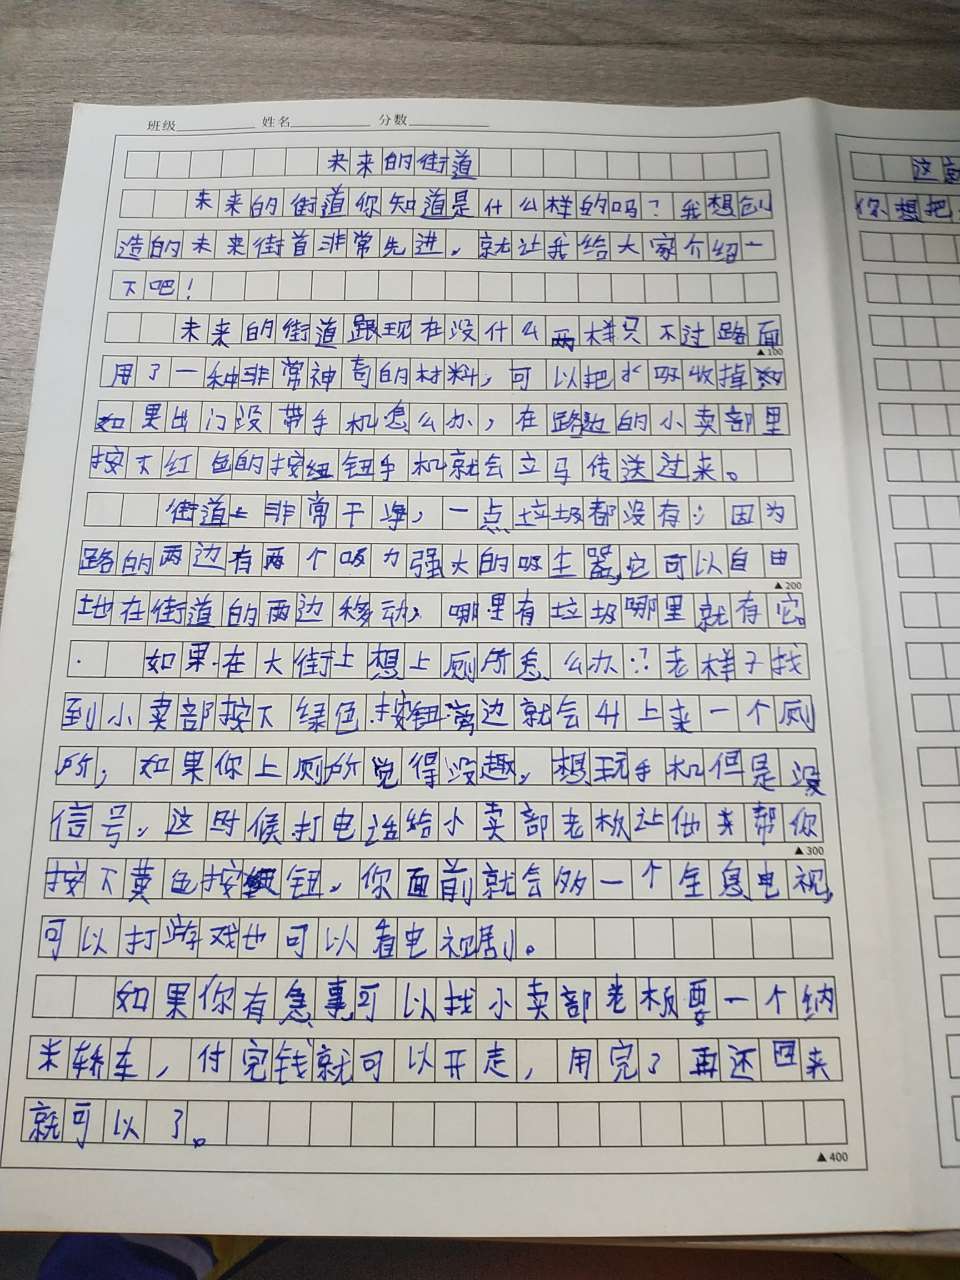 班级 姓名 分数
未来的街道
未来的街道你知道是什么样的吗？我想创
造的未来街首非常先进，就让我给大家介绍一
下吧！
未来的街道跟现在没什么两样只不过路面
▲100
用了一种非常神奇的材料，可以把水吸收掉
如果出门没带手机怎么办，在路边的小卖部里
按下红色的按钮手机就会立马传送过来。
街道上非常干净，一点垃圾都没有；因为
路的两边有两个吸力强大的吸尘器，它可以自由
▲200
地在街道的两边移动，哪里有垃圾哪里就有它。
如果在大街上想上厕所怎么办？老样子找
到小卖部按下绿色按钮旁边就会升上来一个厕
所，如果你上厕所觉得没趣，想玩手机但是没
信号，这时候打电话给小卖部老板让他来帮你
▲300
按下黄色按钮，你面前就会多一个全息电视，
可以打游戏也可以看电视剧。
如果你有急事可以找小卖部老板要一个纳
米轿车，付完钱就可以开走，用完了再还回来
就可以了。
▲400
这就
你想把